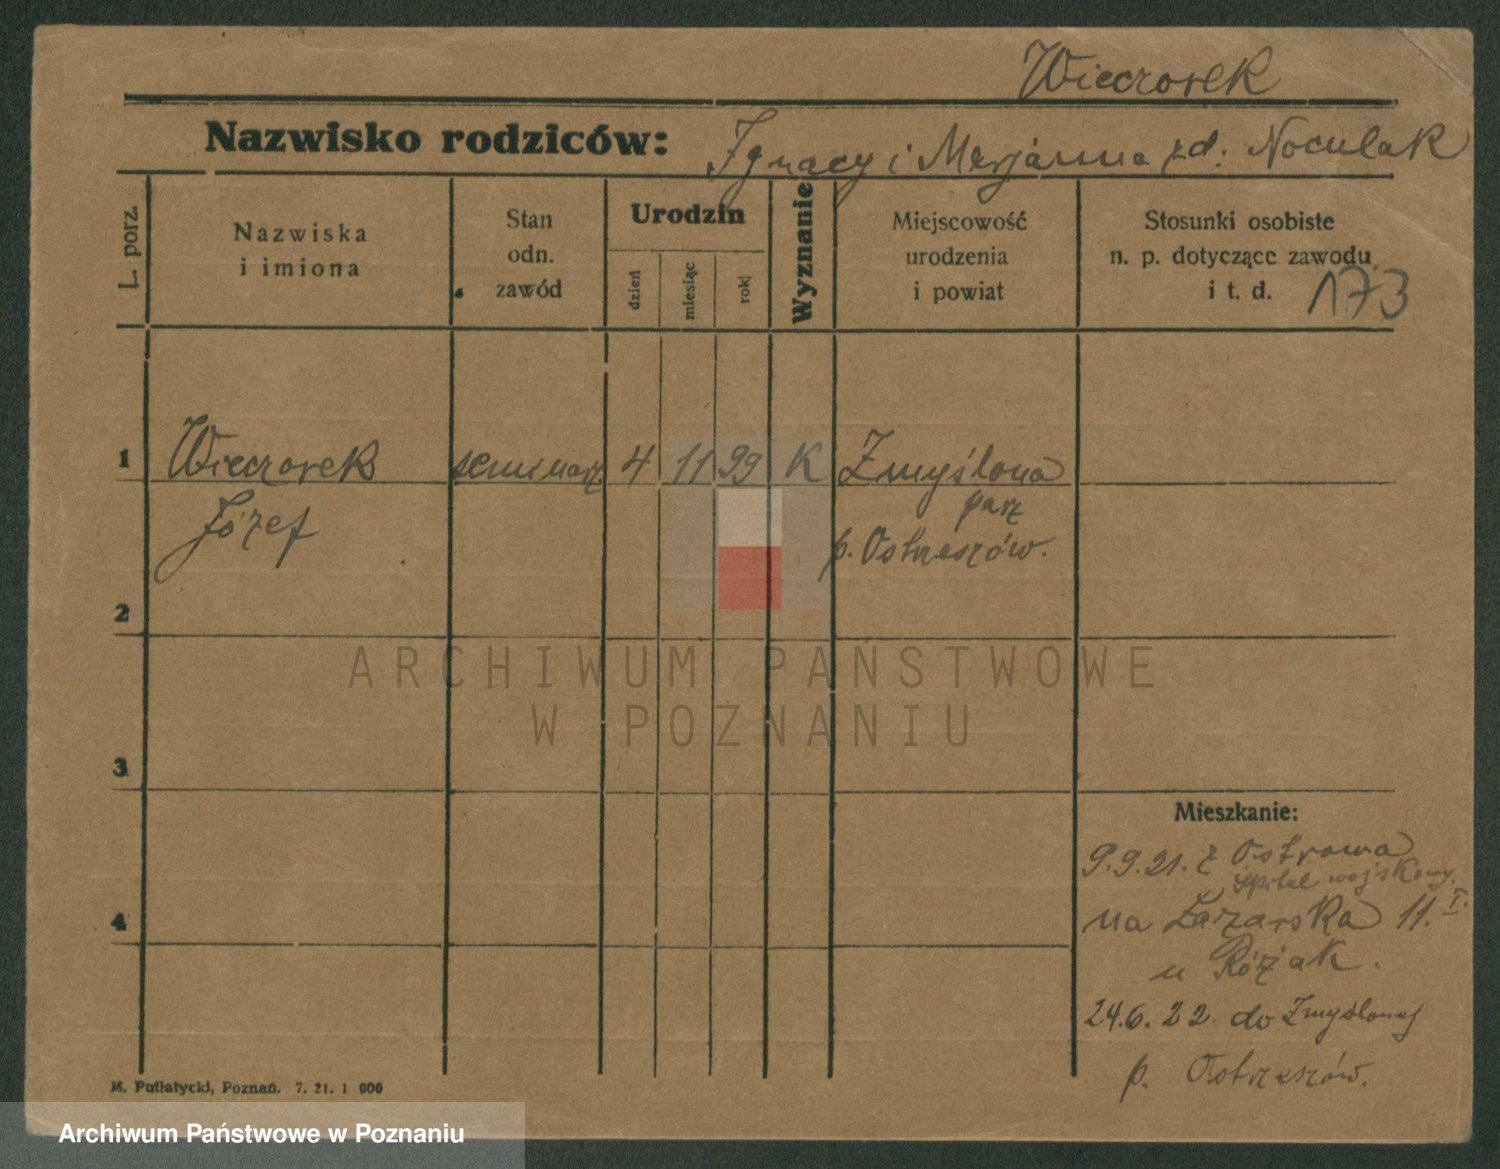 Wieczorek
Nazwisko rodziców: Ignacy i Marjanna zd: Noculak
L. porz.
Nazwiska
i imiona
Stan
odn.
zawód
Urodzin
dzień
miesiąc
rok
Wyznanie
Miejscowość
urodzenia
i powiat
Stosunki osobiste
n. p. dotyczące zawodu
i t. d. 173
1 Wieczorek seminarz. 4 11 99 K Zmyślona
parz
Józef p. Ostrzeszów.
2
ARCHIWUM PAŃSTWOWE
W POZNANIU
3
Mieszkanie:
9.9.21. z Ostrowa
szpital wojskowy.
4 na Łazarska 11. I.
u Róziak.
24.6.22. do Zmyślonej
p. Ostrzeszów.
M. Putiatycki, Poznań. 7. 21. 1 000
Archiwum Państwowe w Poznaniu